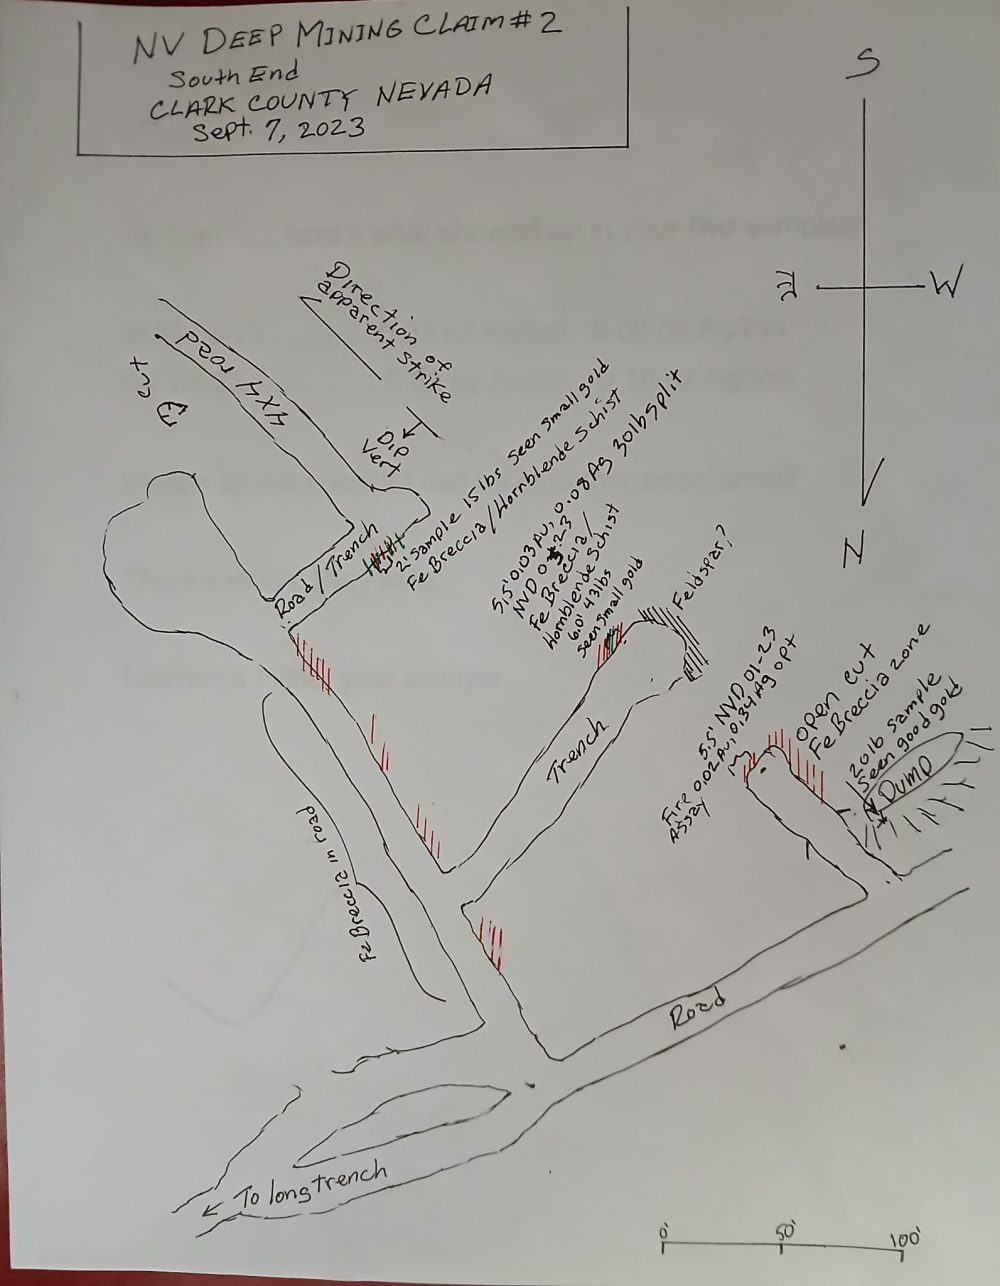 NV DEEP MINING CLAIM # 2
South End
CLARK COUNTY NEVADA
Sept. 7, 2023
S
E
W
N
Direction of
apparent strike
Dip
Vert
4x4 road
cut
Road / Trench
2' sample 15 lbs seen small gold
Fe Breccia / Hornblende Schist
5.5' 0.03 Au, 0.08 Ag 30 lb split
NVD 03-23
Fe Breccia /
Hornblende Schist
6.0' 43 lbs
seen small gold
Feldspar?
Trench
5.5' NVD 01-23
Fire 0.02 Au, 0.34 Ag opt
Assay
open cut
Fe Breccia zone
20 lb sample
seen good gold
Dump
Fe Breccia in road
Road
To long trench
0'
50'
100'